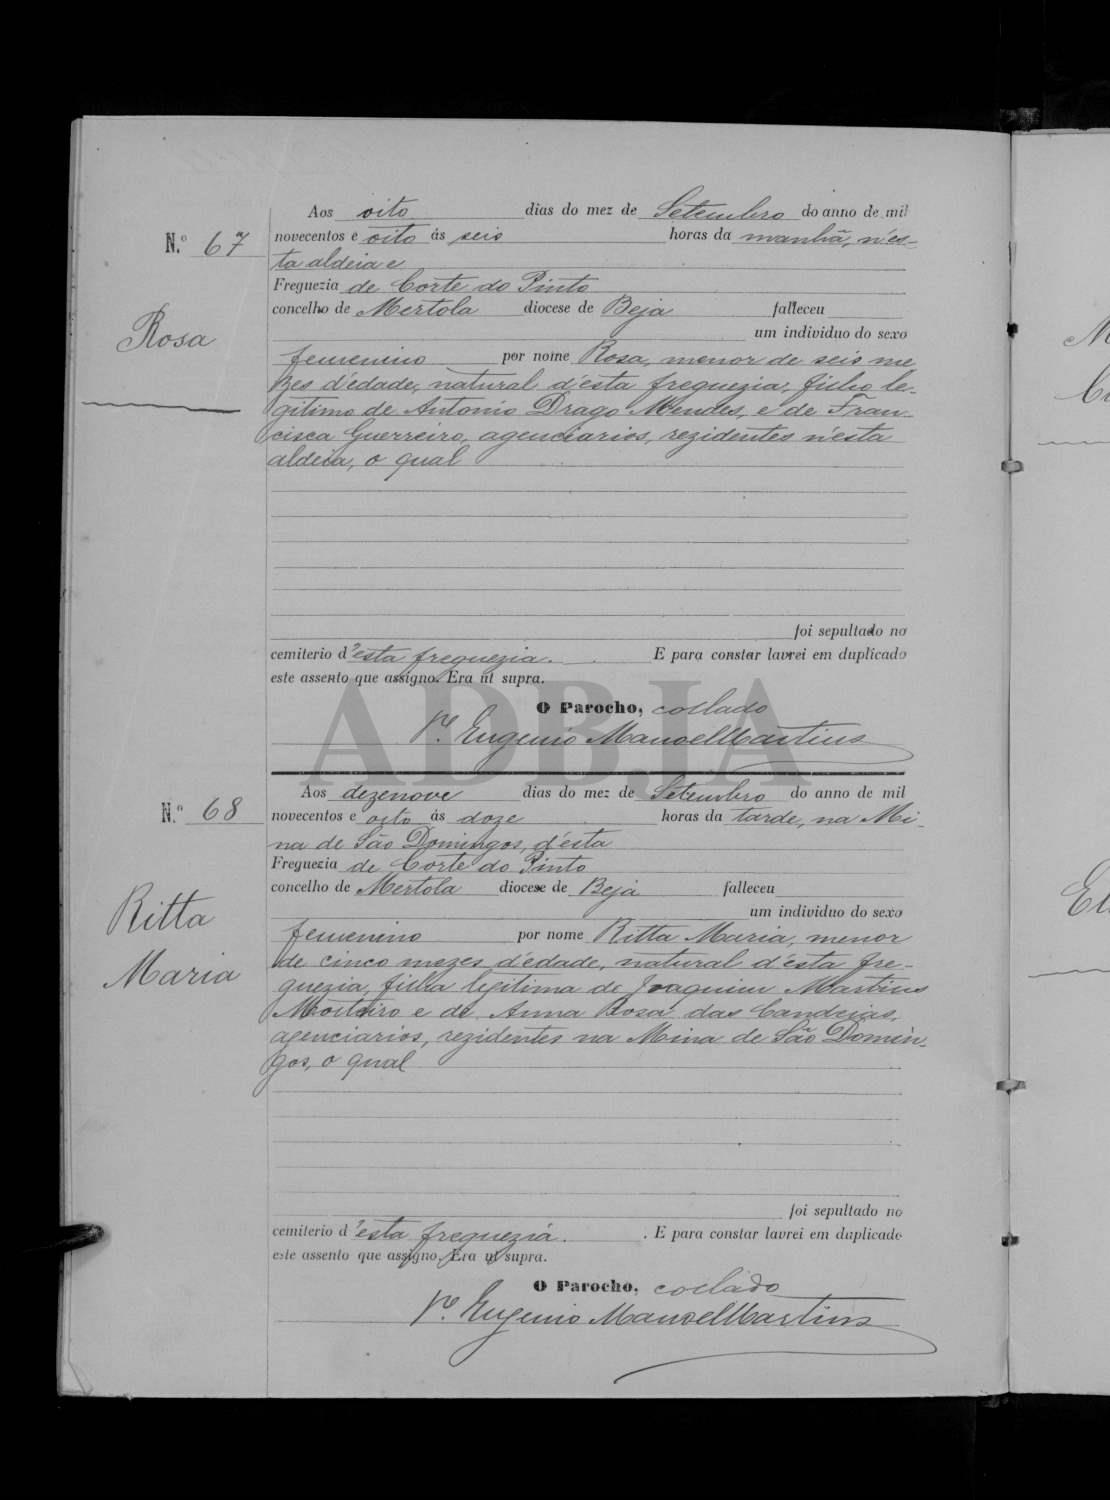 Aos oito dias do mez de Setembro do anno de mil
N.º 67
novecentos e oito ás seis horas da manhã, n'es-
ta aldeia e
Freguezia de Corte do Pinto
concelho de Mertola diocese de Beja falleceu
Rosa
um individuo do sexo
femenino por nome Rosa, menor de seis me
zes d'edade, natural d'esta freguezia, filho le-
gitimo de Antonio Drago Mendes, e de Fran-
cisca Guerreiro, agenciarios, rezidentes n'esta
aldeia, o qual
foi sepultado no
cemiterio d'esta freguezia. E para constar lavrei em duplicado
este assento que assigno. Era ut supra.
O Parocho, collado
P.e Eugenio Manoel Martins
ADBJA
Aos dezenove dias do mez de Setembro do anno de mil
N.º 68
novecentos e oito ás doze horas da tarde, na Mi-
na de São Domingos, d'esta
Freguezia de Corte do Pinto
concelho de Mertola diocese de Beja falleceu
Ritta
Maria
um individuo do sexo
femenino por nome Ritta Maria, menor
de cinco mezes d'edade, natural d'esta fre-
guezia, filha legitima de Joaquim Martins
Mosteiro e de Anna Rosa das Candeias,
agenciarios, rezidentes na Mina de São Domin-
gos, o qual
foi sepultado no
cemiterio d'esta freguezia. E para constar lavrei em duplicado
este assento que assigno. Era ut supra.
O Parocho, collado
P.e Eugenio Manoel Martins